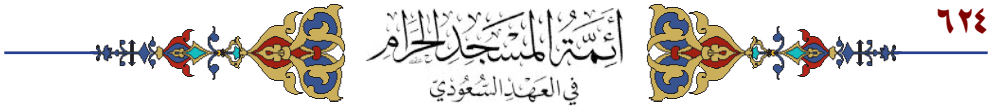 ٦٢٤
أئمة المسجد الحرام
في العهد السعودي